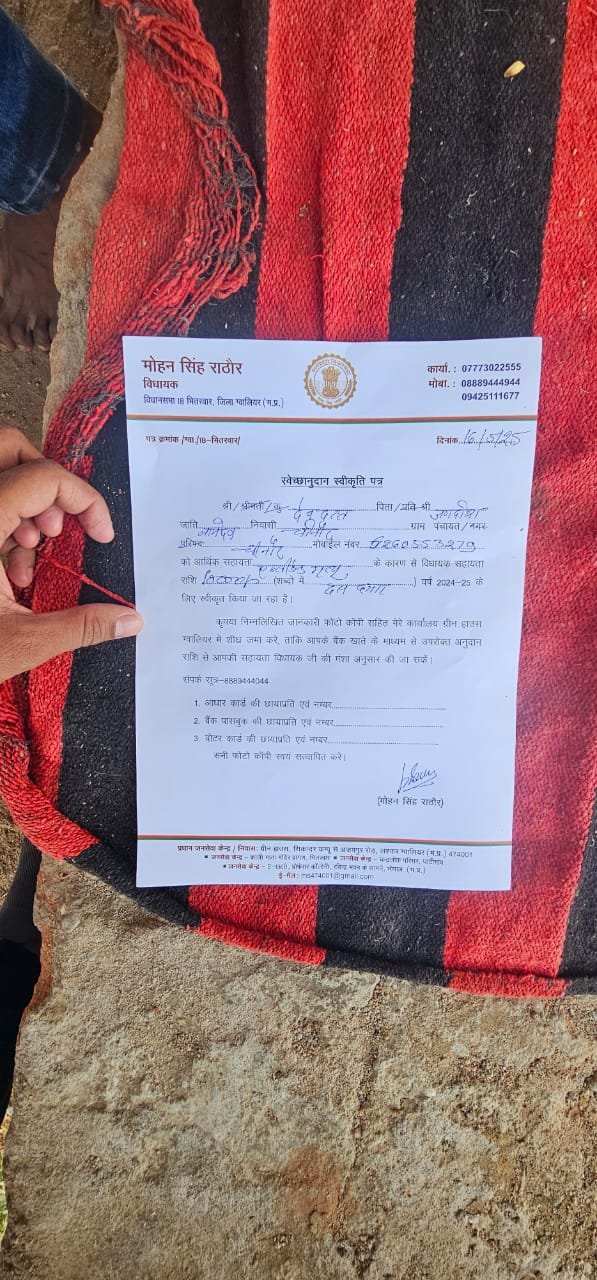 मोहन सिंह राठौर
विधायक
विधानसभा 18 भितरवार, जिला ग्वालियर (म.प्र.)
कार्या. : 07773022555
मोबा. : 08889444944
09425111677
पत्र क्रमांक /ग्वा./18-भितरवार/
दिनांक 16/5/25
स्वेच्छानुदान स्वीकृति पत्र
श्री/श्रीमती/कु. देवदत्त पिता/पति श्री जगदीश
जाति नामदेव निवासी चीनौर ग्राम पंचायत/नगर
परिषद चीनौर मोबाईल नंबर 6260553279
को आर्थिक सहायता के कारण से विधायक सहायता
राशि (शब्दों में दस हजार) वर्ष 2024-25 के
लिए स्वीकृत किया जा रहा है।
कृपया निम्नलिखित जानकारी फोटो कॉपी सहित मेरे कार्यालय ग्रीन हाउस
ग्वालियर में शीघ्र जमा करें, ताकि आपके बैंक खाते के माध्यम से उपरोक्त अनुदान
राशि से आपकी सहायता विधायक जी की मंशा अनुसार की जा सकें।
संपर्क सूत्र-8889444044
1. आधार कार्ड की छायाप्रति एवं नम्बर
2. बैंक पासबुक की छायाप्रति एवं नम्बर
3. वोटर कार्ड की छायाप्रति एवं नम्बर
सभी फोटो कॉपी स्वयं सत्यापित करें।
(मोहन सिंह राठौर)
प्रधान जनसेवा केन्द्र / निवास: ग्रीन हाउस, सिकन्दर कम्पू से अजयपुर रोड, लश्कर ग्वालियर (म.प्र.) 474001
जनसेवा केन्द्र - काली माता मंदिर प्रांगण, भितरवार जनसेवा केन्द्र - चन्द्रलोक परिसर, घाटीगांव
जनसेवा केन्द्र - प्रोफेसर कॉलोनी, रविन्द्र भवन के सामने, भोपाल (म.प्र.)
ई-मेल : ms474001@gmail.com